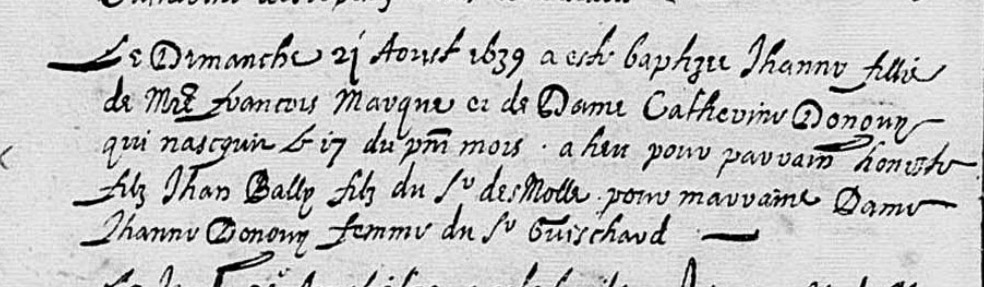 Le Dimanche 21 Aoust 1639 a este baptizee Jhanne fillie
de Mre francois Marque et de Dame Catherine Donouy
qui nasquit le 17 du pnt mois . a heu pour parrain honeste
filz Jhan Bally filz du Sr des Molle pour marraine Dame
Jhanne Donouy femme du Sr Guischard